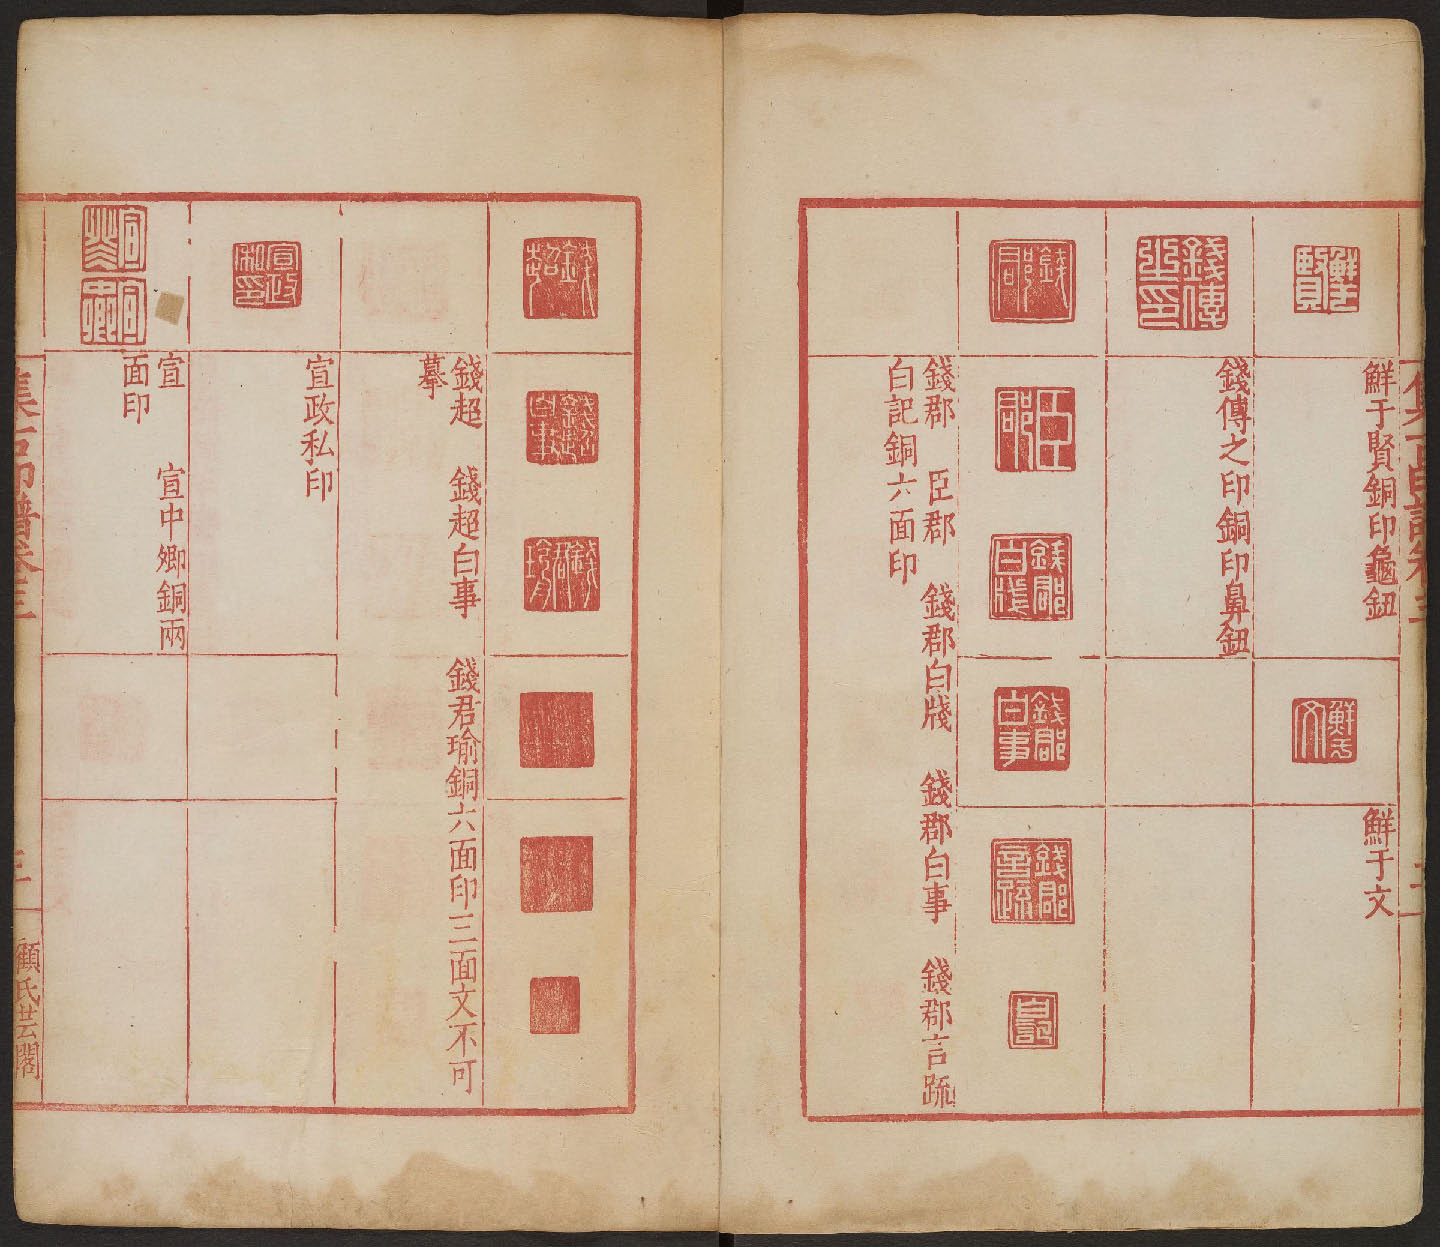 鮮于賢銅印龜鈕
鮮于文
錢傳之印銅印鼻鈕
錢郡　臣郡　錢郡白牋　錢郡白事　錢郡言䟽
白記銅六面印
錢超　錢超白事　錢君瑜銅六面印三面文不可
摹
宣政私印
宣　宣中卿銅兩
面印
集古印譜卷三
三
顧氏芸閣